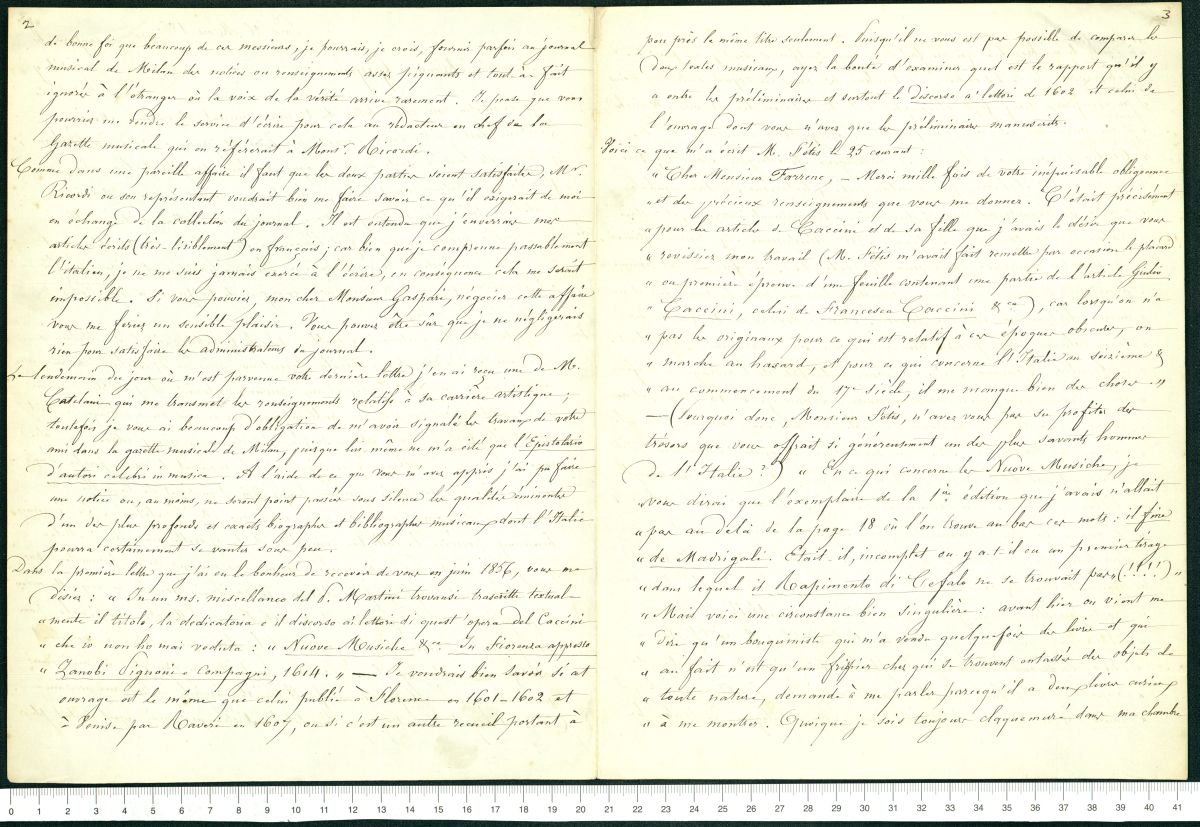 2
de bonne foi que beaucoup de ces messieurs, je pourrais, je crois, fournir parfois au journal
musical de Milan des notices ou renseignements assez piquants et tout-à-fait
ignorés à l'étranger où la voix de la vérité arrive rarement. Je pense que vous
pourriez me rendre le service d'écrire pour cela au rédacteur en chef de la
Gazette musicale qui en référerait à Monsr. Ricordi.
Comme dans une pareille affaire il faut que les deux parties soient satisfaites, Mr.
Ricordi ou son représentant voudrait bien me faire savoir ce qu'il exigerait de moi
en échange de la collection du journal. Il est entendu que j'enverrais mes
articles écrits (très-lisiblement) en français; car bien que je comprenne passablement
l'italien, je ne me suis jamais exercé à l'écrire, en conséquence cela me serait
impossible. Si vous pouviez, mon cher Monsieur Gaspari, négocier cette affaire
vous me feriez un sensible plaisir. Vous pouvez être sûr que je ne négligerais
rien pour satisfaire les administrateurs du journal.
Le lendemain du jour où m'est parvenue votre dernière lettre j'en ai reçu une de M.
Catelani qui me transmet les renseignements relatifs à sa carrière artistique;
toutefois je vous ai beaucoup d'obligation de m'avoir signalé les travaux de votre
ami dans la gazette musicale de Milan, puisque lui même ne m'a cité que l'Epistolario
d'autori celebri in musica. A l'aide de ce que vous m'avez appris j'ai pu faire
une notice où, au moins, ne seront point passées sous silence les qualités éminentes
d'un des plus profonds et exacts biographes et bibliographes musicaux dont l'Italie
pourra certainement se vanter sous peu.
Dans la première lettre que j'ai eu le bonheur de recevoir de vous en juin 1856, vous me
disiez: "In un ms. miscellaneo del P. Martini trovansi trascritte textual-
"mente il titolo, la dedicatoria e il discorso ai lettori di quest'opera del Caccini
"che io non ho mai veduta: "Nuove Musiche &ca. In Fiorenza appresso
"Zanobi Pignoni e compagni, 1614." — Je voudrais bien savoir si cet
ouvrage est le même que celui publié à Florence en 1601-1602 et
à Venise par Raveri en 1607, ou si c'est un autre recueil portant à
3
peu près le même titre seulement. Puisqu'il ne vous est pas possible de comparer les
deux textes musicaux, ayez la bonté d'examiner quel est le rapport qu'il y
a entre les préliminaires et surtout le discorso a' lettori de 1602 et celui de
l'ouvrage dont vous n'avez que les préliminaires manuscrits.
Voici ce que m'a écrit M. Fétis le 25 courant:
"Cher Monsieur Farrenc, — Merci mille fois de votre inépuisable obligeance
"et des précieux renseignements que vous me donnez. C'était précisément
"pour les articles de Caccini et de sa fille que j'avais le désir que vous
"revissiez mon travail (M. Fétis m'avait fait remettre par occasion le placard
"ou première épreuve d'une feuille contenant une partie de l'article Giulio
"Caccini, celui de Francesca Caccini &ca), car lorsqu'on n'a
"pas les originaux pour ce qui est relatif à ces époques obscures, on
"marche au hasard, et pour ce qui concerne l'Italie au seizième &
"au commencement du 17e siècle, il me manque bien des choses."
— (Pourquoi donc, Monsieur Fétis, n'avez vous pas su profiter des
trésors que vous offrait si généreusement un des plus savants hommes
de l'Italie?) "En ce qui concerne les Nuove Musiche, je
"vous dirai que l'exemplaire de la 1ère édition que j'avais n'allait
"pas au delà de la page 18 où l'on trouve au bas ces mots: il fine
"de Madrigali. Etait-il incomplet ou y a-t-il eu un premier tirage
"dans lequel il Rapimento di Cefalo ne se trouvait pas" (!!!!) "
"Mais voici une circonstance bien singulière: avant hier on vient me
"dire qu'un bouquiniste qui m'a vendu quelquefois des livres et qui
"au fait n'est qu'un fripier chez qui se trouvent entassés des objets de
"toute nature, demande à me parler parcequ'il a deux livres curieux
"à me montrer. Quoique je sois toujours claquemuré dans ma chambre
0 1 2 3 4 5 6 7 8 9 10 11 12 13 14 15 16 17 18 19 20 21 22 23 24 25 26 27 28 29 30 31 32 33 34 35 36 37 38 39 40 41